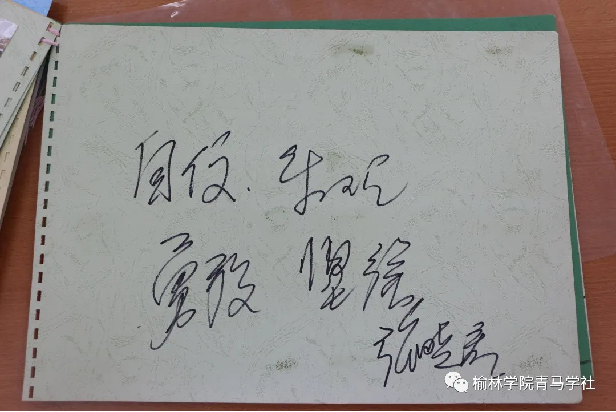 自信.乐观
勇敢
张晓
榆林学院青马学社